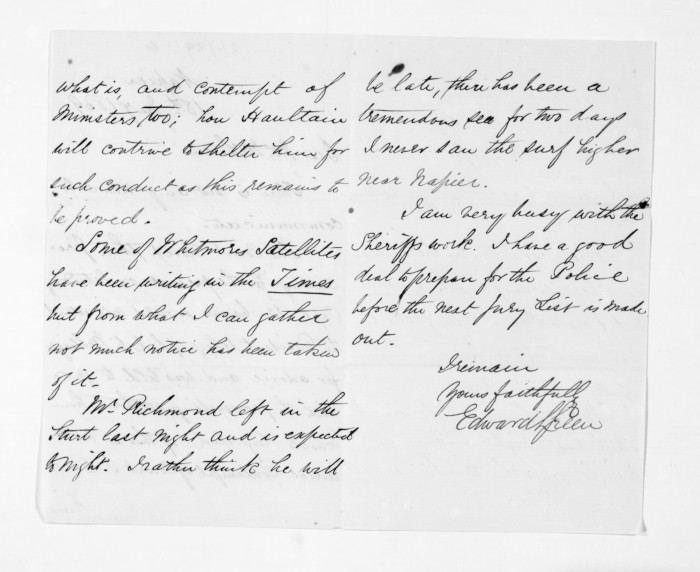 what is, and contempt of
Ministers, too; how Haultain
will contrive to shelter him for
such conduct as this remains to
be proved.
Some of Whitmores Satellites
have been writing in the Times
but from what I can gather
not much notice has been taken
of it.
Mr. Richmond left in the
Sturt last night and is expected
to night. I rather think he will
be late, there has been a
tremendous sea for two days
I never saw the surf higher
near Napier.
I am very busy with the
Sheriffs work. I have a good
deal to prepare for the Police
before the next Jury List is made
out.
I remain
Yours faithfully
Edward